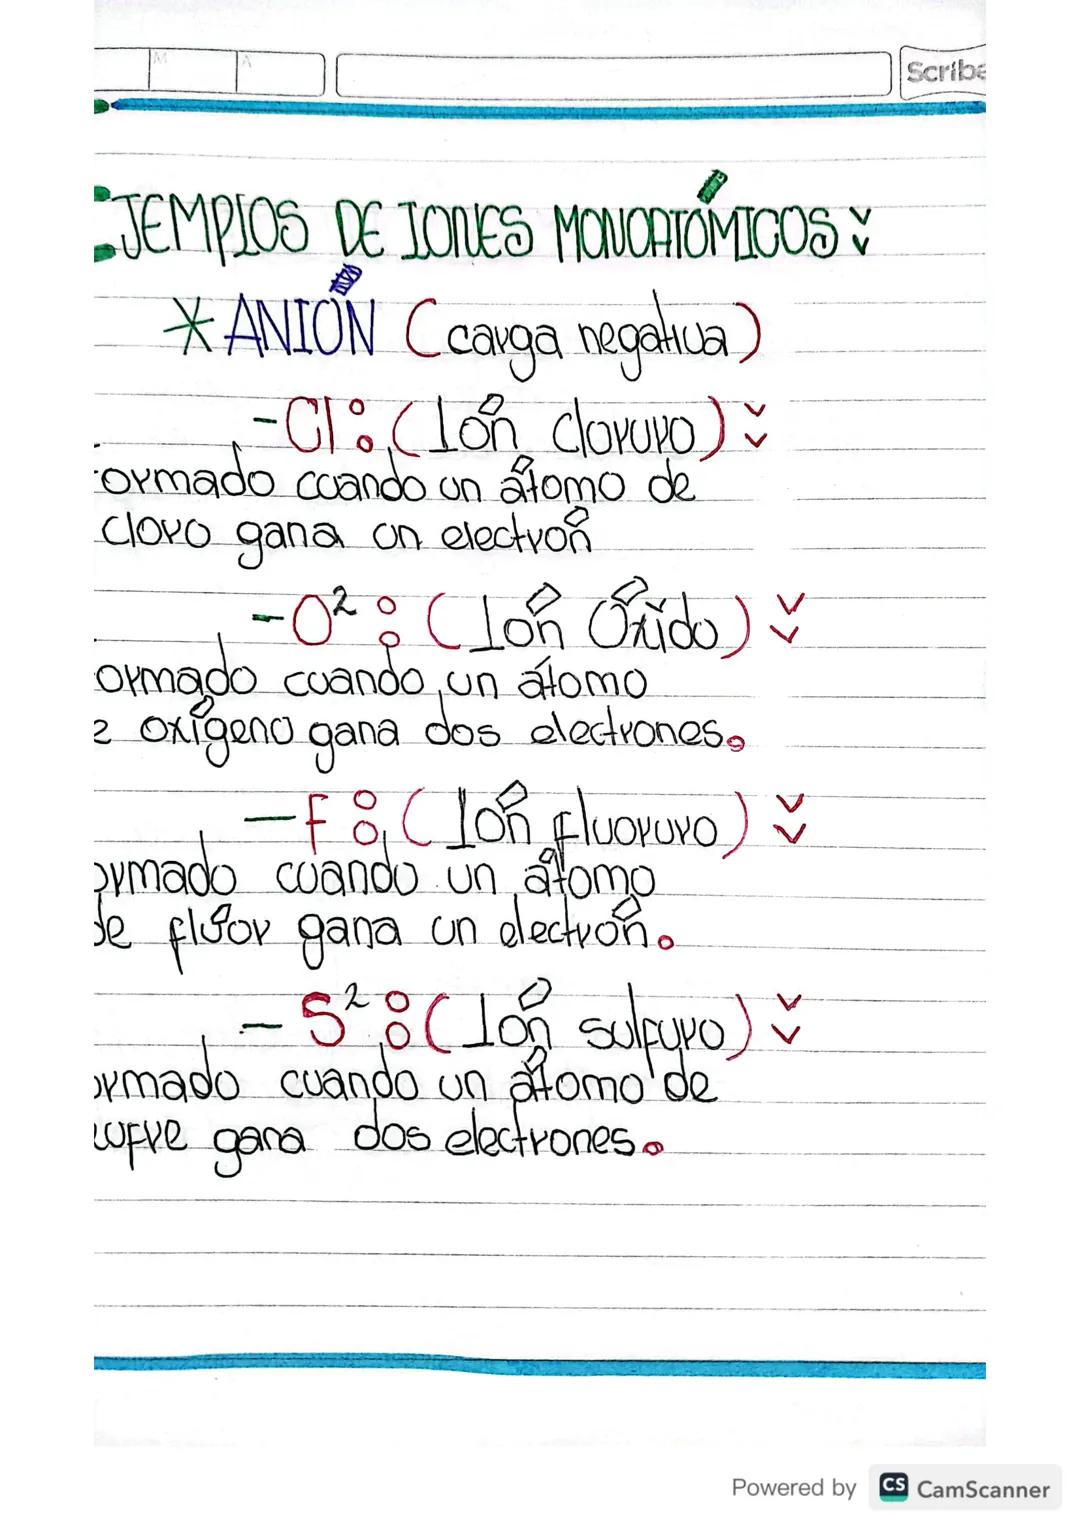 M A Scribe
EJEMPlOS DE IONES MONOATÓMICOS:
* ANIÓN (carga negativa)
- Cl: (Ión cloruro):
formado cuando un átomo de
cloro gana un electrón
- O²: (Ión Óxido):
ormado cuando un átomo
e oxígeno gana dos electrones.
- F: (Ión fluoruro):
ormado cuando un átomo
de flúor gana un electrón.
- S²: (Ión sulfuro):
ormado cuando un átomo de
zufre gana dos electrones.
Powered by CS CamScanner